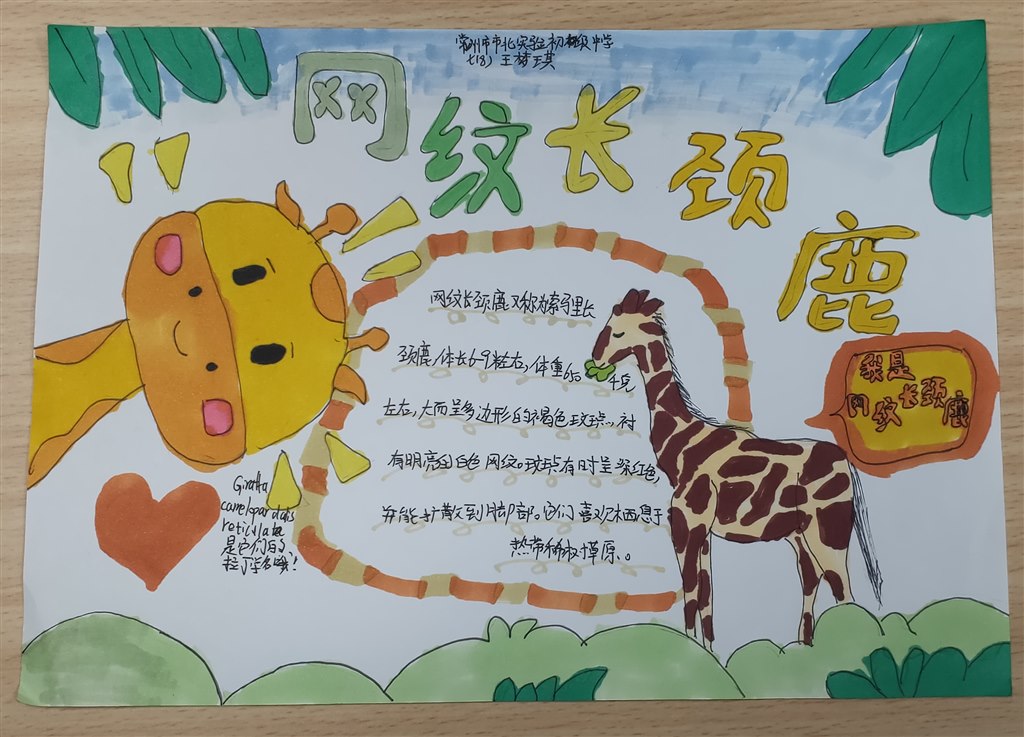 常州市市北实验初级中学
七(8) 王梦琪
网纹长颈鹿
网纹长颈鹿又称索马里长
颈鹿,体长6-9米左右,体重650千克
左右,大而呈多边形的褐色斑块,衬
有明亮的白色网纹。斑块有时呈深红色,
并能扩散到脚部。它们喜欢栖息于
热带稀树草原。
我是
网纹长颈鹿
Giraffa
camelopardalis
reticulata
是它们的
拉丁学名哦!